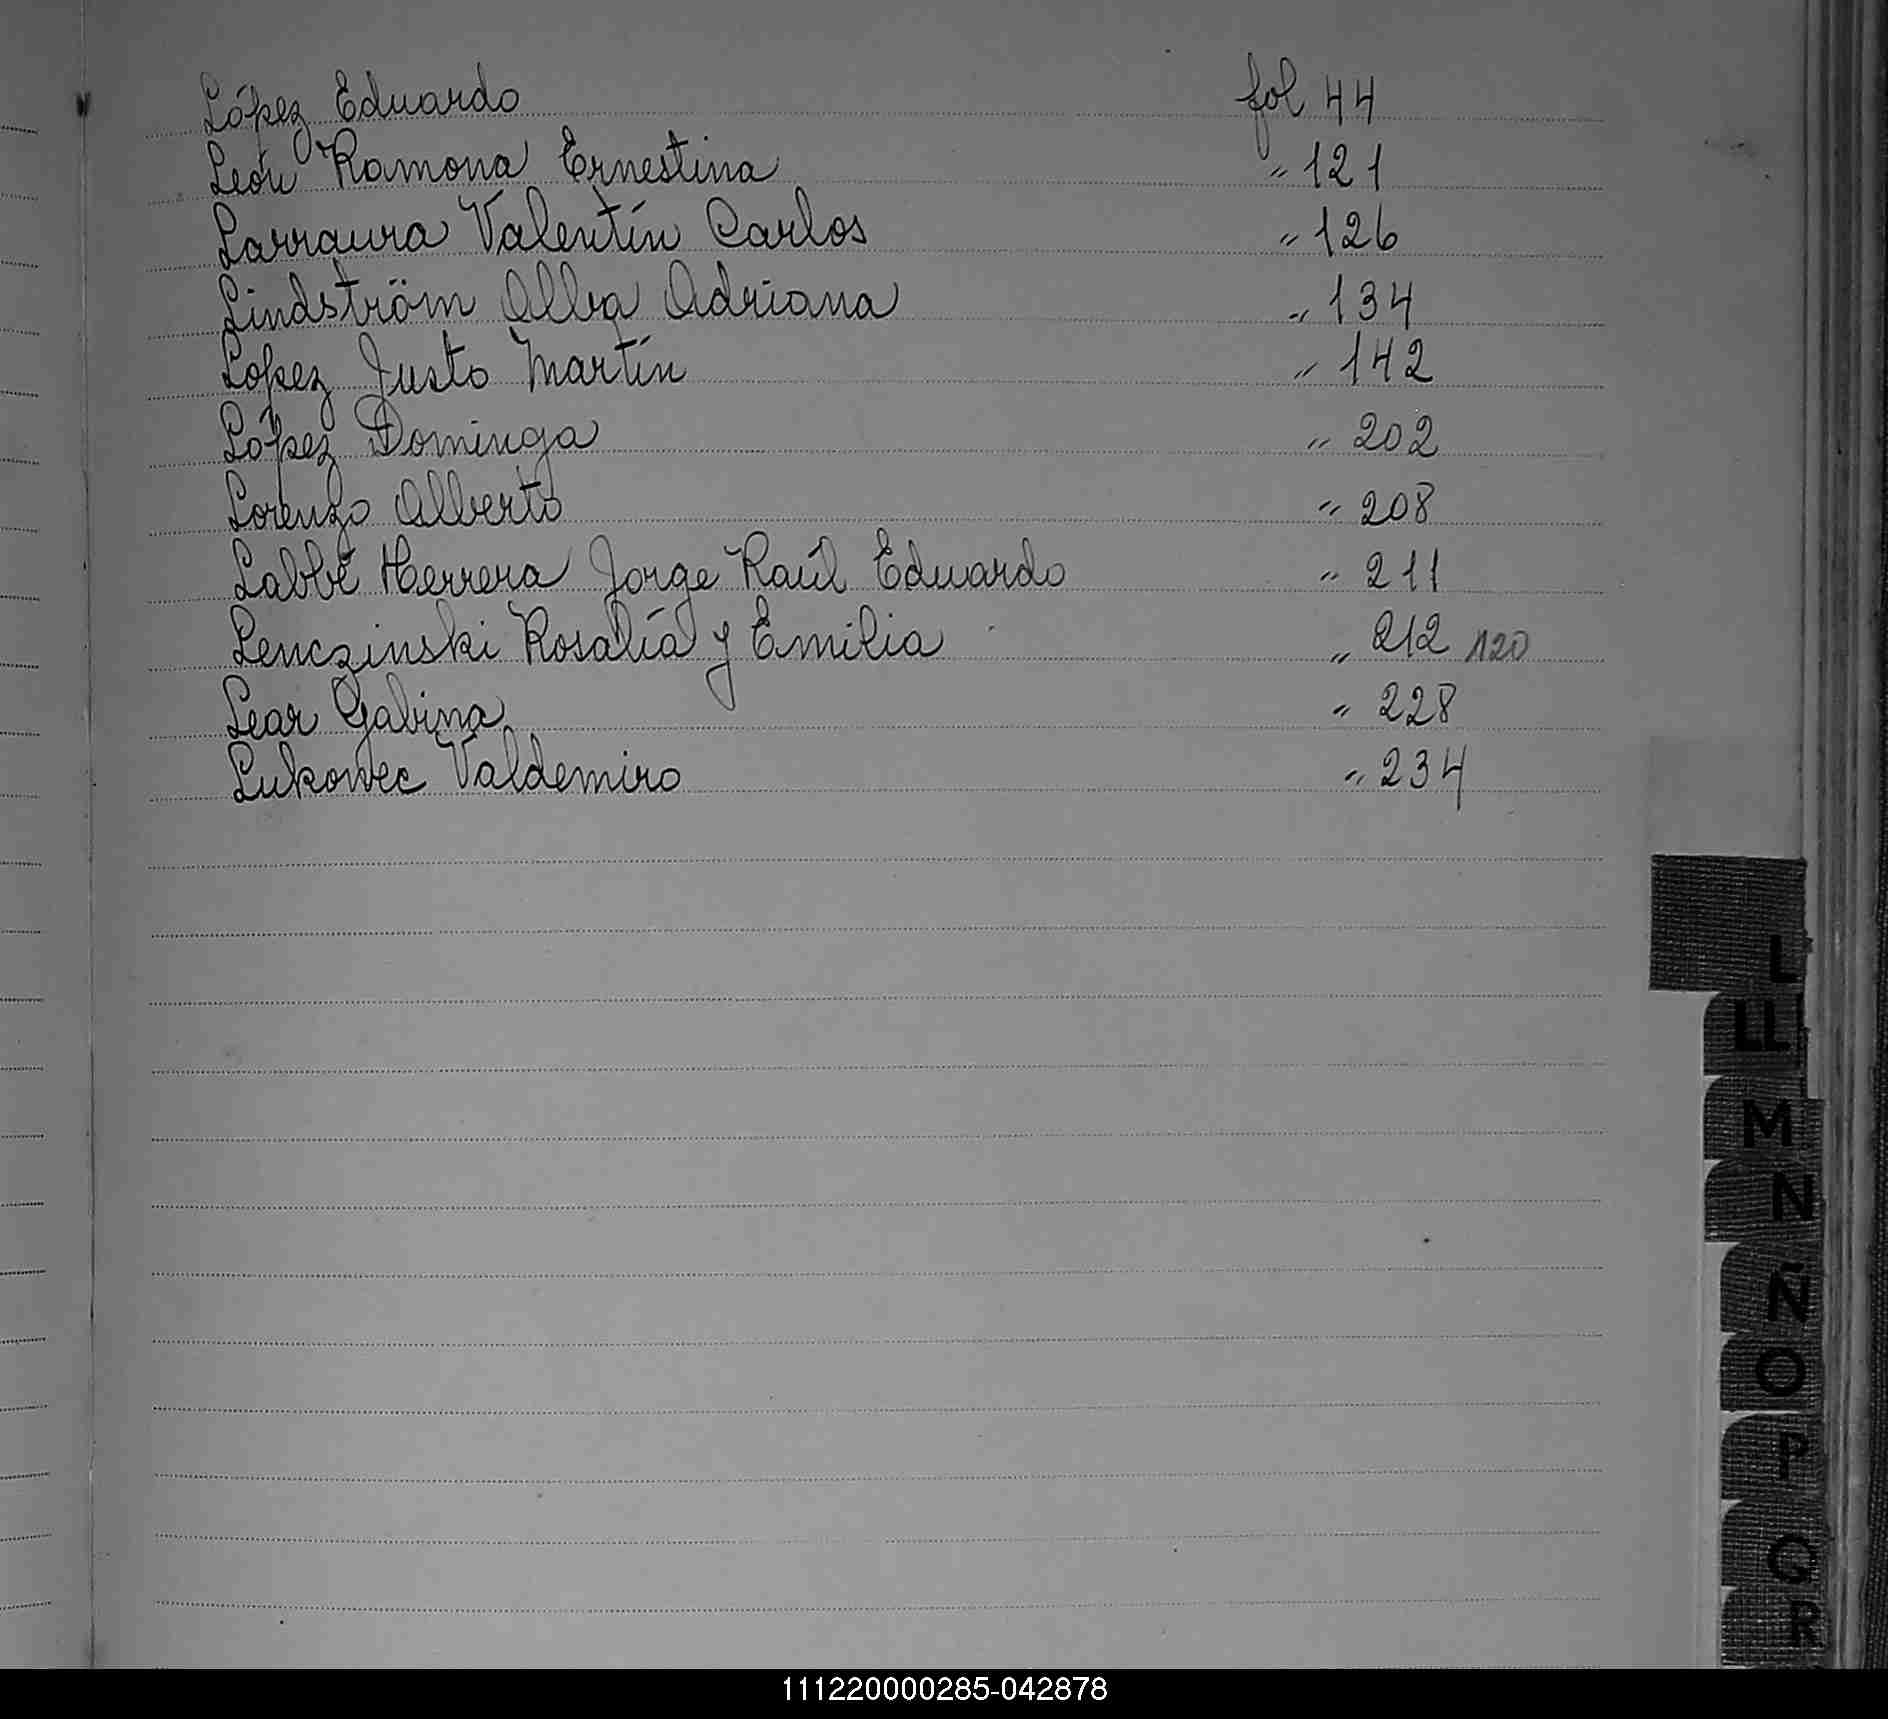 López Eduardo fol 44
León Ramona Ernestina " 121
Larraura Valentín Carlos " 126
Lindström Alba Adriana " 134
Lopez Justo Martín " 142
López Dominga " 202
Lorenzo Alberto " 208
Labbé Herrera Jorge Raúl Eduardo " 211
Lenczinski Rosalía y Emilia " 212 120
Lear Gabina " 228
Lukowec Valdemiro " 234
L
LL
M
N
Ñ
O
P
Q
R
111220000285-042878